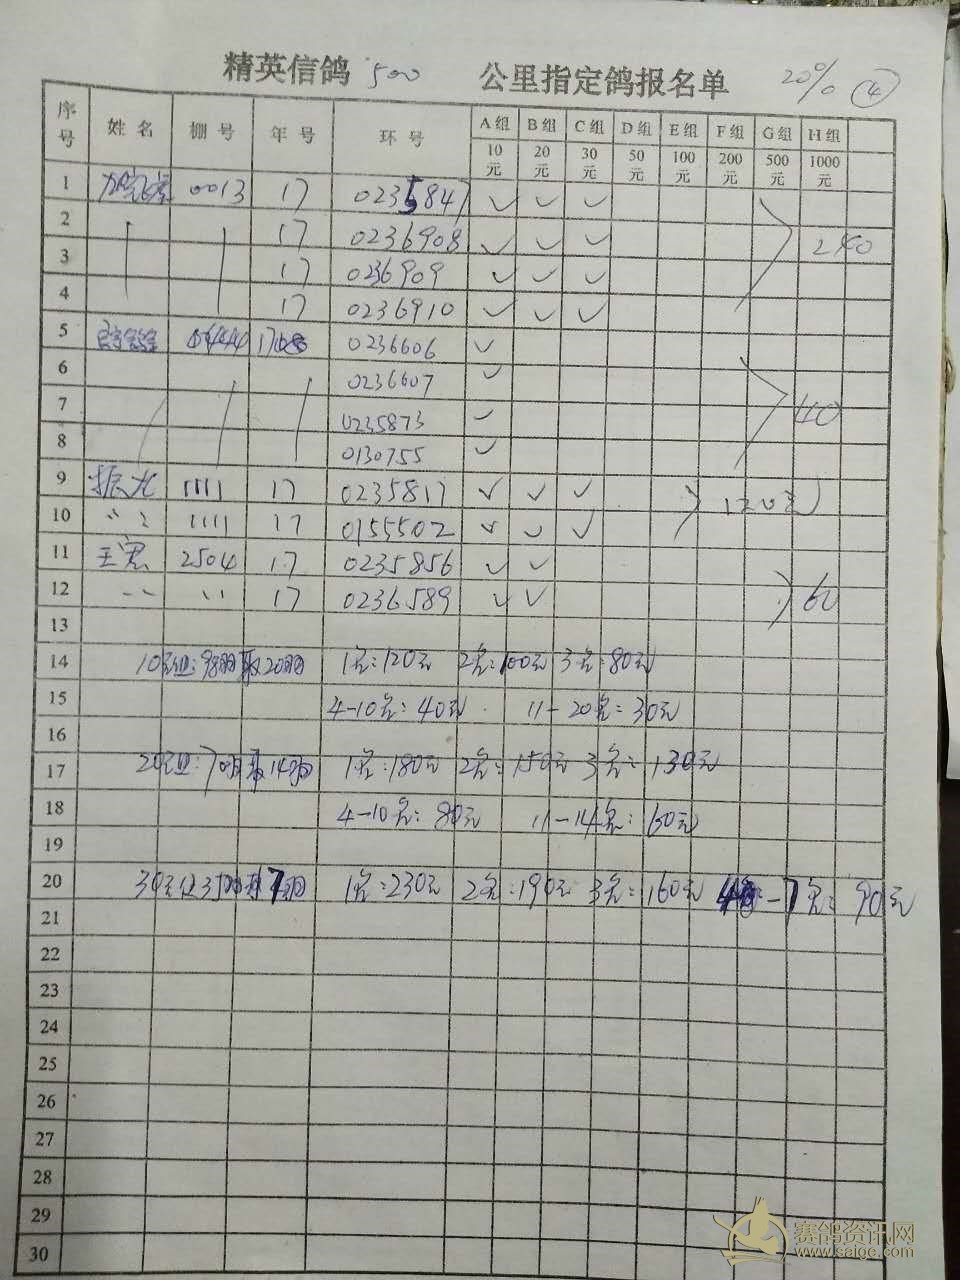 精英信鸽 500 公里指定鸽报名单 20% ④
序号 姓名 棚号 年号 环号 A组 B组 C组 D组 E组 F组 G组 H组
10元 20元 30元 50元 100元 200元 500元 1000元
1 0013 17 0235847 ✓ ✓ ✓
2 17 0236908 ✓ ✓ ✓ 240
3 17 0236909 ✓ ✓ ✓
4 17 0236910 ✓ ✓ ✓
5 0236606 ✓
6 0236607 ✓
7 0235873 ✓ 40
8 0130755 ✓
9 振九 1111 17 0235817 ✓ ✓ ✓ 120元
10 〃 1111 17 0155502 ✓ ✓ ✓
11 王 2504 17 0235856 ✓ ✓
12 〃 〃 17 0236589 ✓ ✓ 60
13
14 10元组:98羽取20羽 1名:120元 2名:100元 3名:80元
15 4-10名:40元 11-20名:30元
16
17 20元组:70羽取14羽 1名:180元 2名:150元 3名:130元
18 4-10名:80元 11-14名:60元
19
20 30元组35羽取7羽 1名:230元 2名:190元 3名:160元 4-7名:90元
21
22
23
24
25
26
27
28
29
30
赛鸽资讯网
www.saigc.com